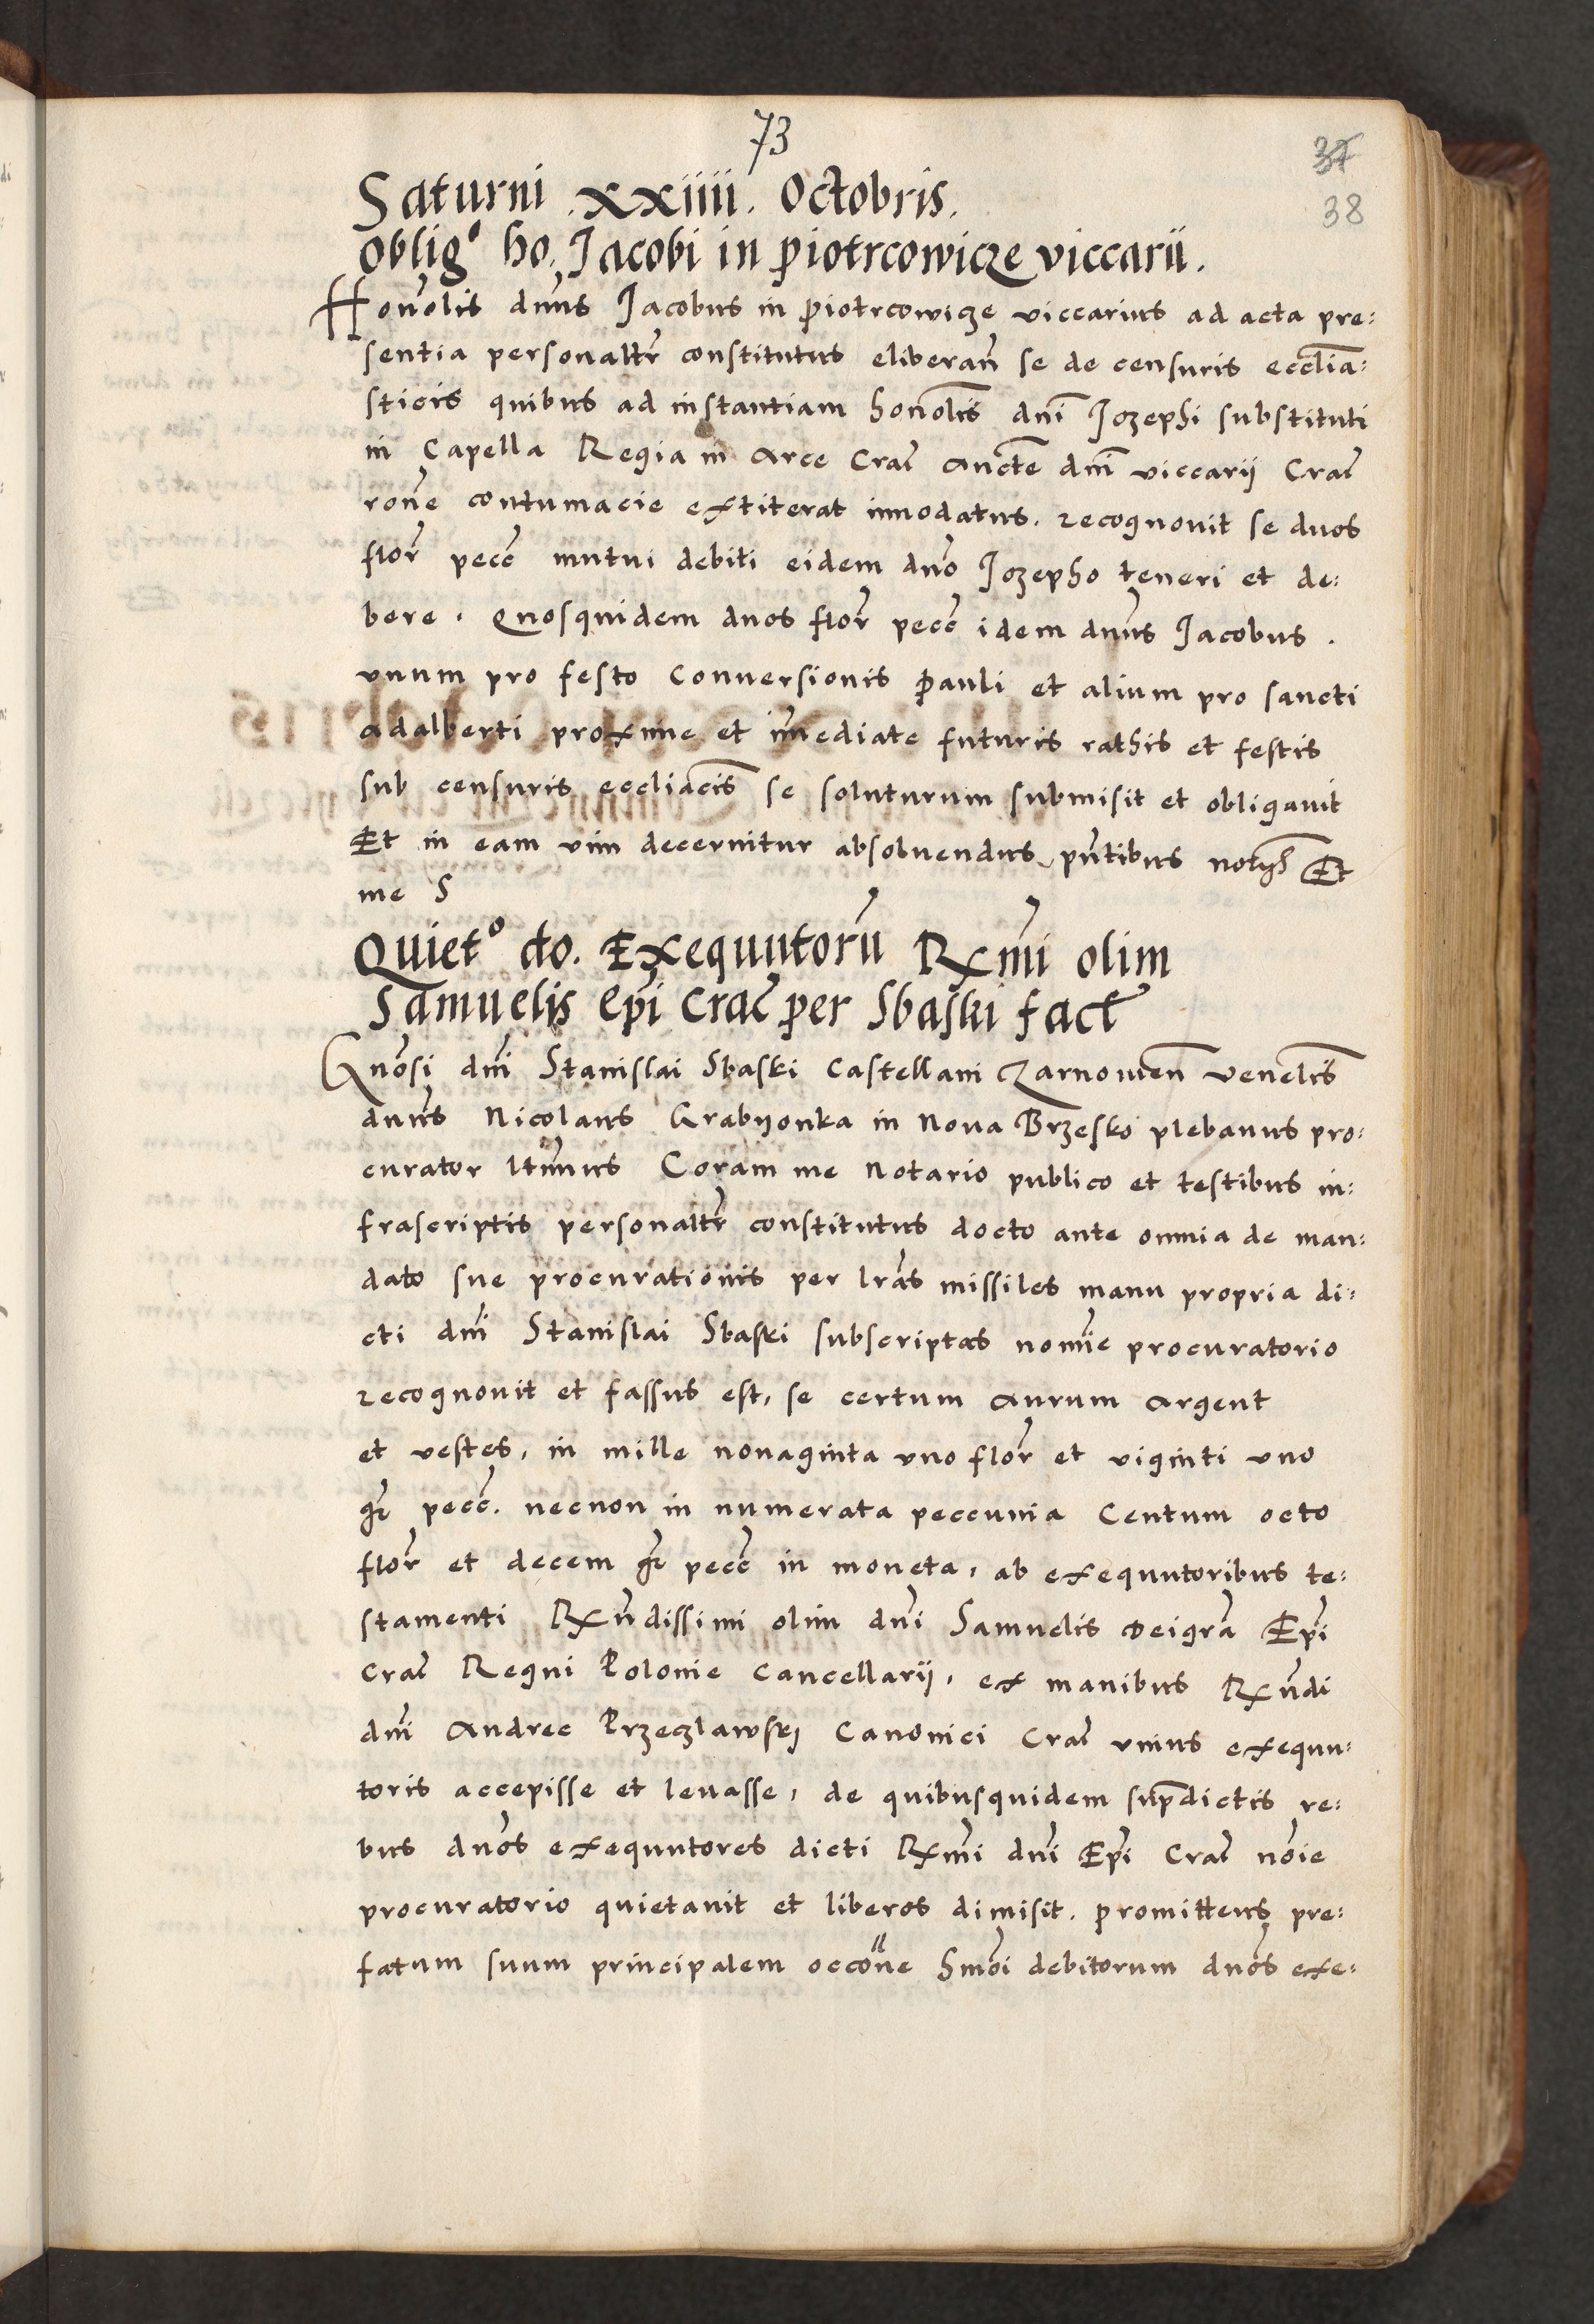 73
37
38
Saturni .xxiiii. Octobris.
Oblig° ho. Jacobi in Piotrcowicze viccarii.
Honōlis dnūs Jacobus in Piotrcowicze viccarius ad acta pre:
sentia personalr̄ constitutus eliberan̄ se de censuris eccl̄ia:
sticis quibus ad instantiam honōlis dnī Jozephi substituti
in Capella Regia in Arce Crac̄ Auctē dnī viccarij Crac̄
ronē contumacie extiterat innodatus. recognovit se duos
flor̄ pecc̄ mutui debiti eidem dnō Jozepho teneri et de:
bere. Quosquidem duos flor̄ pecc̄ idem dnūs Jacobus.
vnum pro festo Conuersionis Pauli et alium pro sancti
Adalberti proxime et im̄ediate futuris rathis et festis
sub censuris eccl̄iacis̄ se soluturum submisit et obligauit
Et in eam vim decernitur absoluendus pn̄tibus Et
me S
Quiet° do. Exequutorū Rx̄mi olim
Samuelis Ep̄i Crac̄ per Sbaski fact̄
Gnōsi dnī Stanislai Sbaski Castellani Czarnouien̄ Venelis̄
dnūs Nicolaus Grabyonka in Nova Brzesko plebanus pro:
curator ltīmus Coram me Notario publico et testibus in:
frascriptis personalr̄ constitutus docto ante omnia de man:
dato sue procurationis per lrās missiles manu propria di:
cti dnī Stanislai Sbaski subscriptas nomīe procuratorio
recognouit et fassus est, se certum Aurum Argent
et vestes, in mille nonaginta vno flor̄ et viginti vno
gr̄ pecc̄. necnon in numerata peccunia Centum octo
flor̄ et decem gr̄ pecc̄ in moneta, ab exequutoribus te:
stamenti Rxn̄dissimi olim dnī Samuelis Deigrā Ep̄i
Crac̄ Regni Polonie Cancellarij, ex manibus Rxn̄di
dnī Andree Przeczlawskj Canonici Crac̄ vnius exequu:
toris accepisse et leuasse, de quibusquidem sup̄dictis re:
bus dnōs exequutores dicti Rx̄mi dnī Ep̄i Crac̄ nōie
procuratorio quietauit et liberos dimisit. promittens pre:
fatum suum principalem occōne hmōi debitorum dnōs exe: